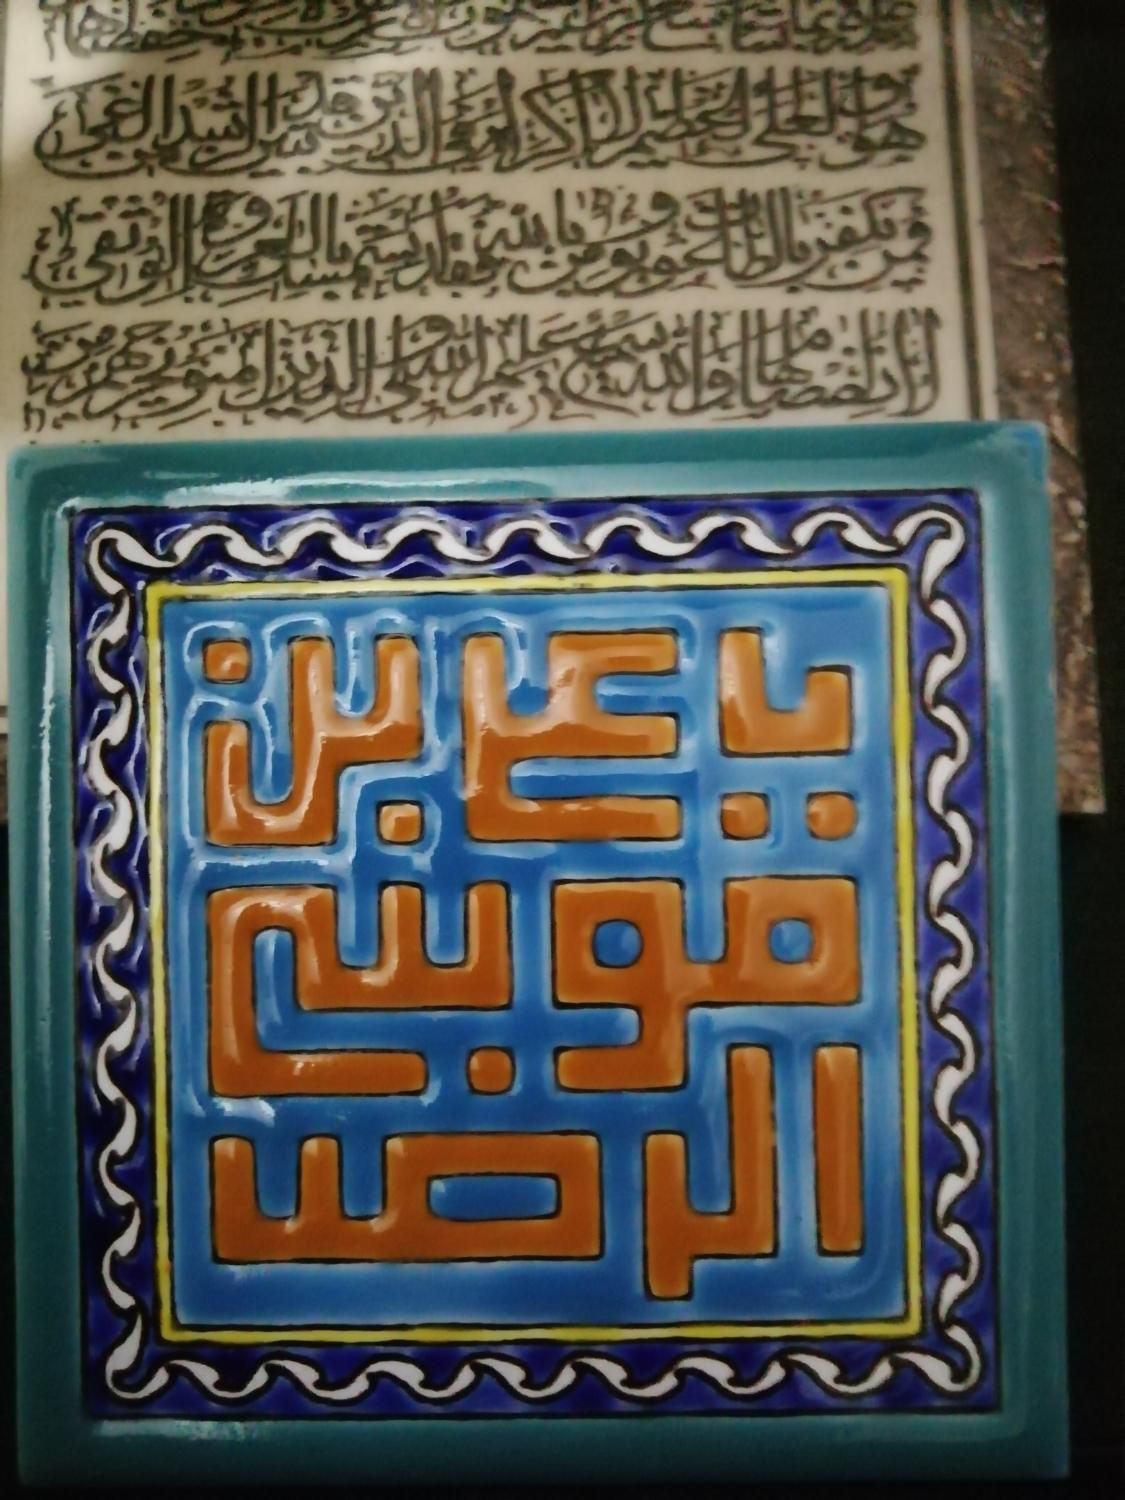 هو العلي العظيم لا اکراه في الدين قد تبين الرشد من الغي
فمن يكفر بالطاغوت ويؤمن بالله فقد استمسك بالعروة الوثقى لا
انفصام لها والله سميع عليم الله ولي الذين امنوا يخرجهم من
يا علي بن
موسى
الرضا